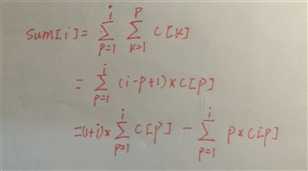 Sum[i] = \sum_{p=1}^{i} \sum_{k=1}^{p} C[k]
= \sum_{p=1}^{i} (i-p+1) × C[p]
= (1+i) × \sum_{p=1}^{i} C[p] - \sum_{p=1}^{i} p × C[p]